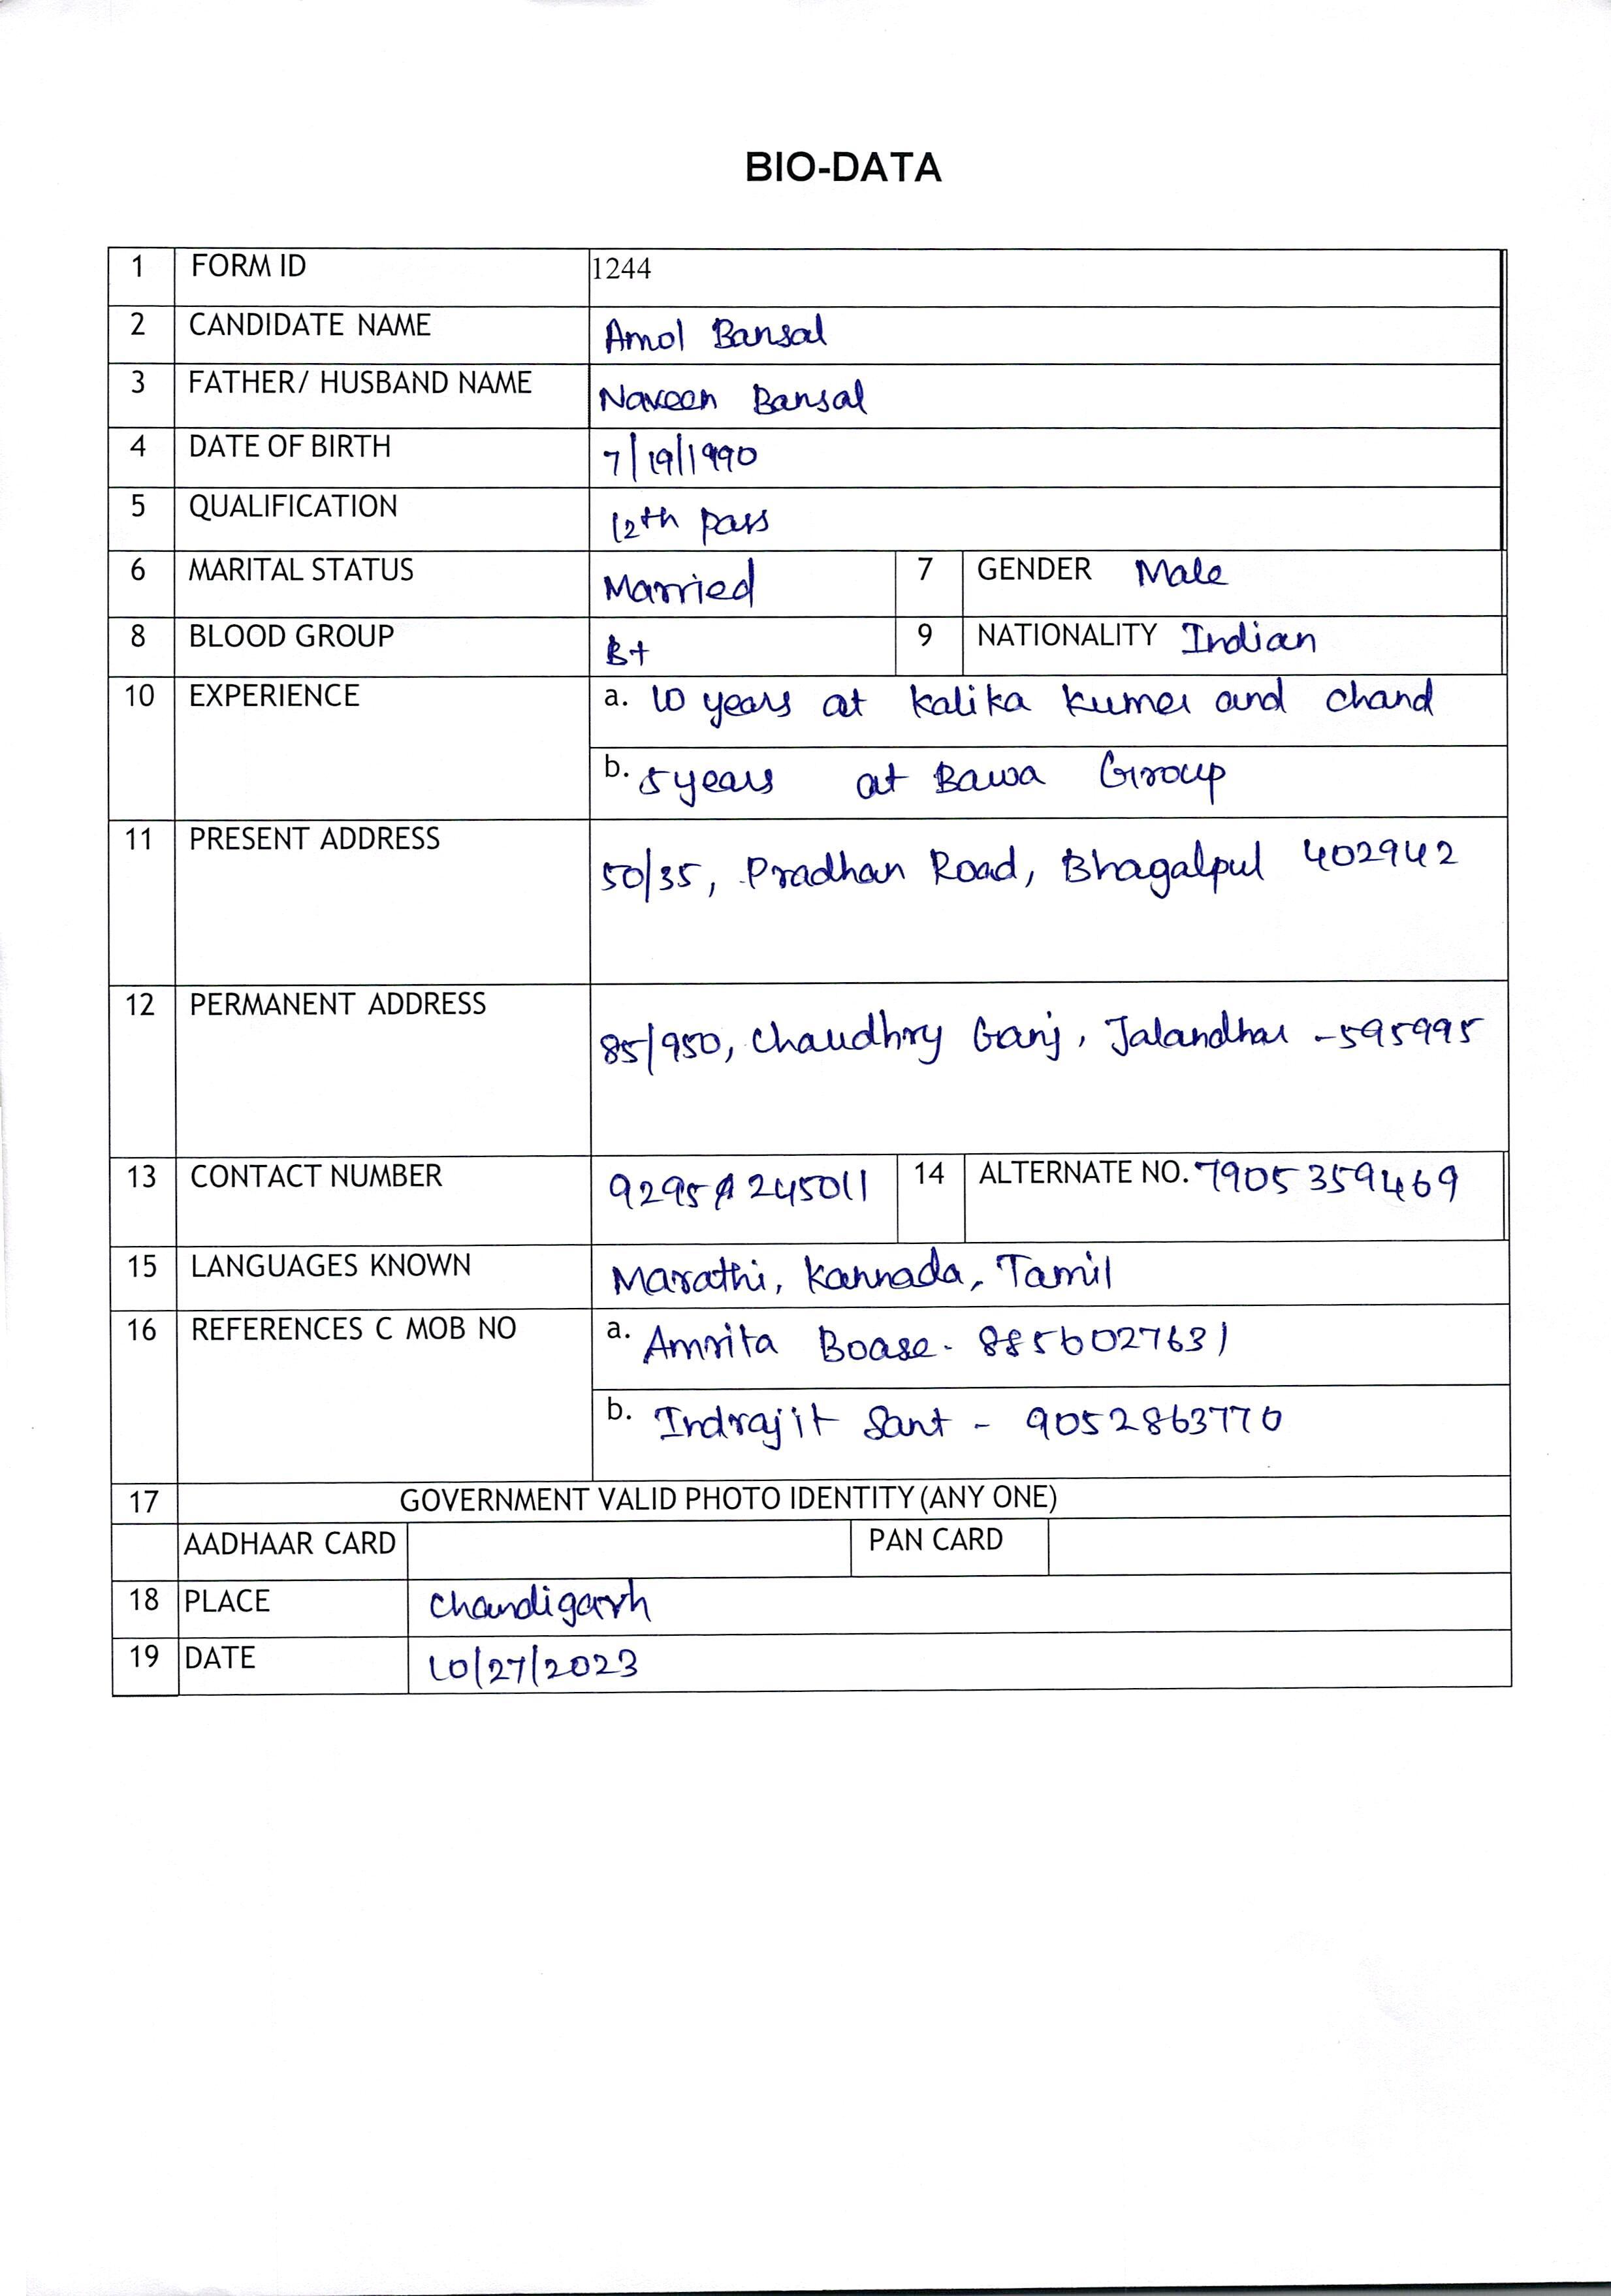 BIO-DATA
1 FORM ID 1244
2 CANDIDATE NAME Amol Bansal
3 FATHER/ HUSBAND NAME Naveen Bansal
4 DATE OF BIRTH 7/19/1990
5 QUALIFICATION 12th pass
6 MARITAL STATUS Married 7 GENDER Male
8 BLOOD GROUP B+ 9 NATIONALITY Indian
10 EXPERIENCE a. 10 years at Kalika Kumer and Chand
b. 5 years at Bawa Group
11 PRESENT ADDRESS 50/35, Pradhan Road, Bhagalpul 402942
12 PERMANENT ADDRESS 85/950, Chaudhry Ganj, Jalandhar -595995
13 CONTACT NUMBER 9295245011 14 ALTERNATE NO. 7905359469
15 LANGUAGES KNOWN Marathi, Kannada, Tamil
16 REFERENCES C MOB NO a. Amrita Boase - 8856027631
b. Indrajit Sant - 9052863770
17 GOVERNMENT VALID PHOTO IDENTITY (ANY ONE)
AADHAAR CARD PAN CARD
18 PLACE Chandigarh
19 DATE 10/27/2023